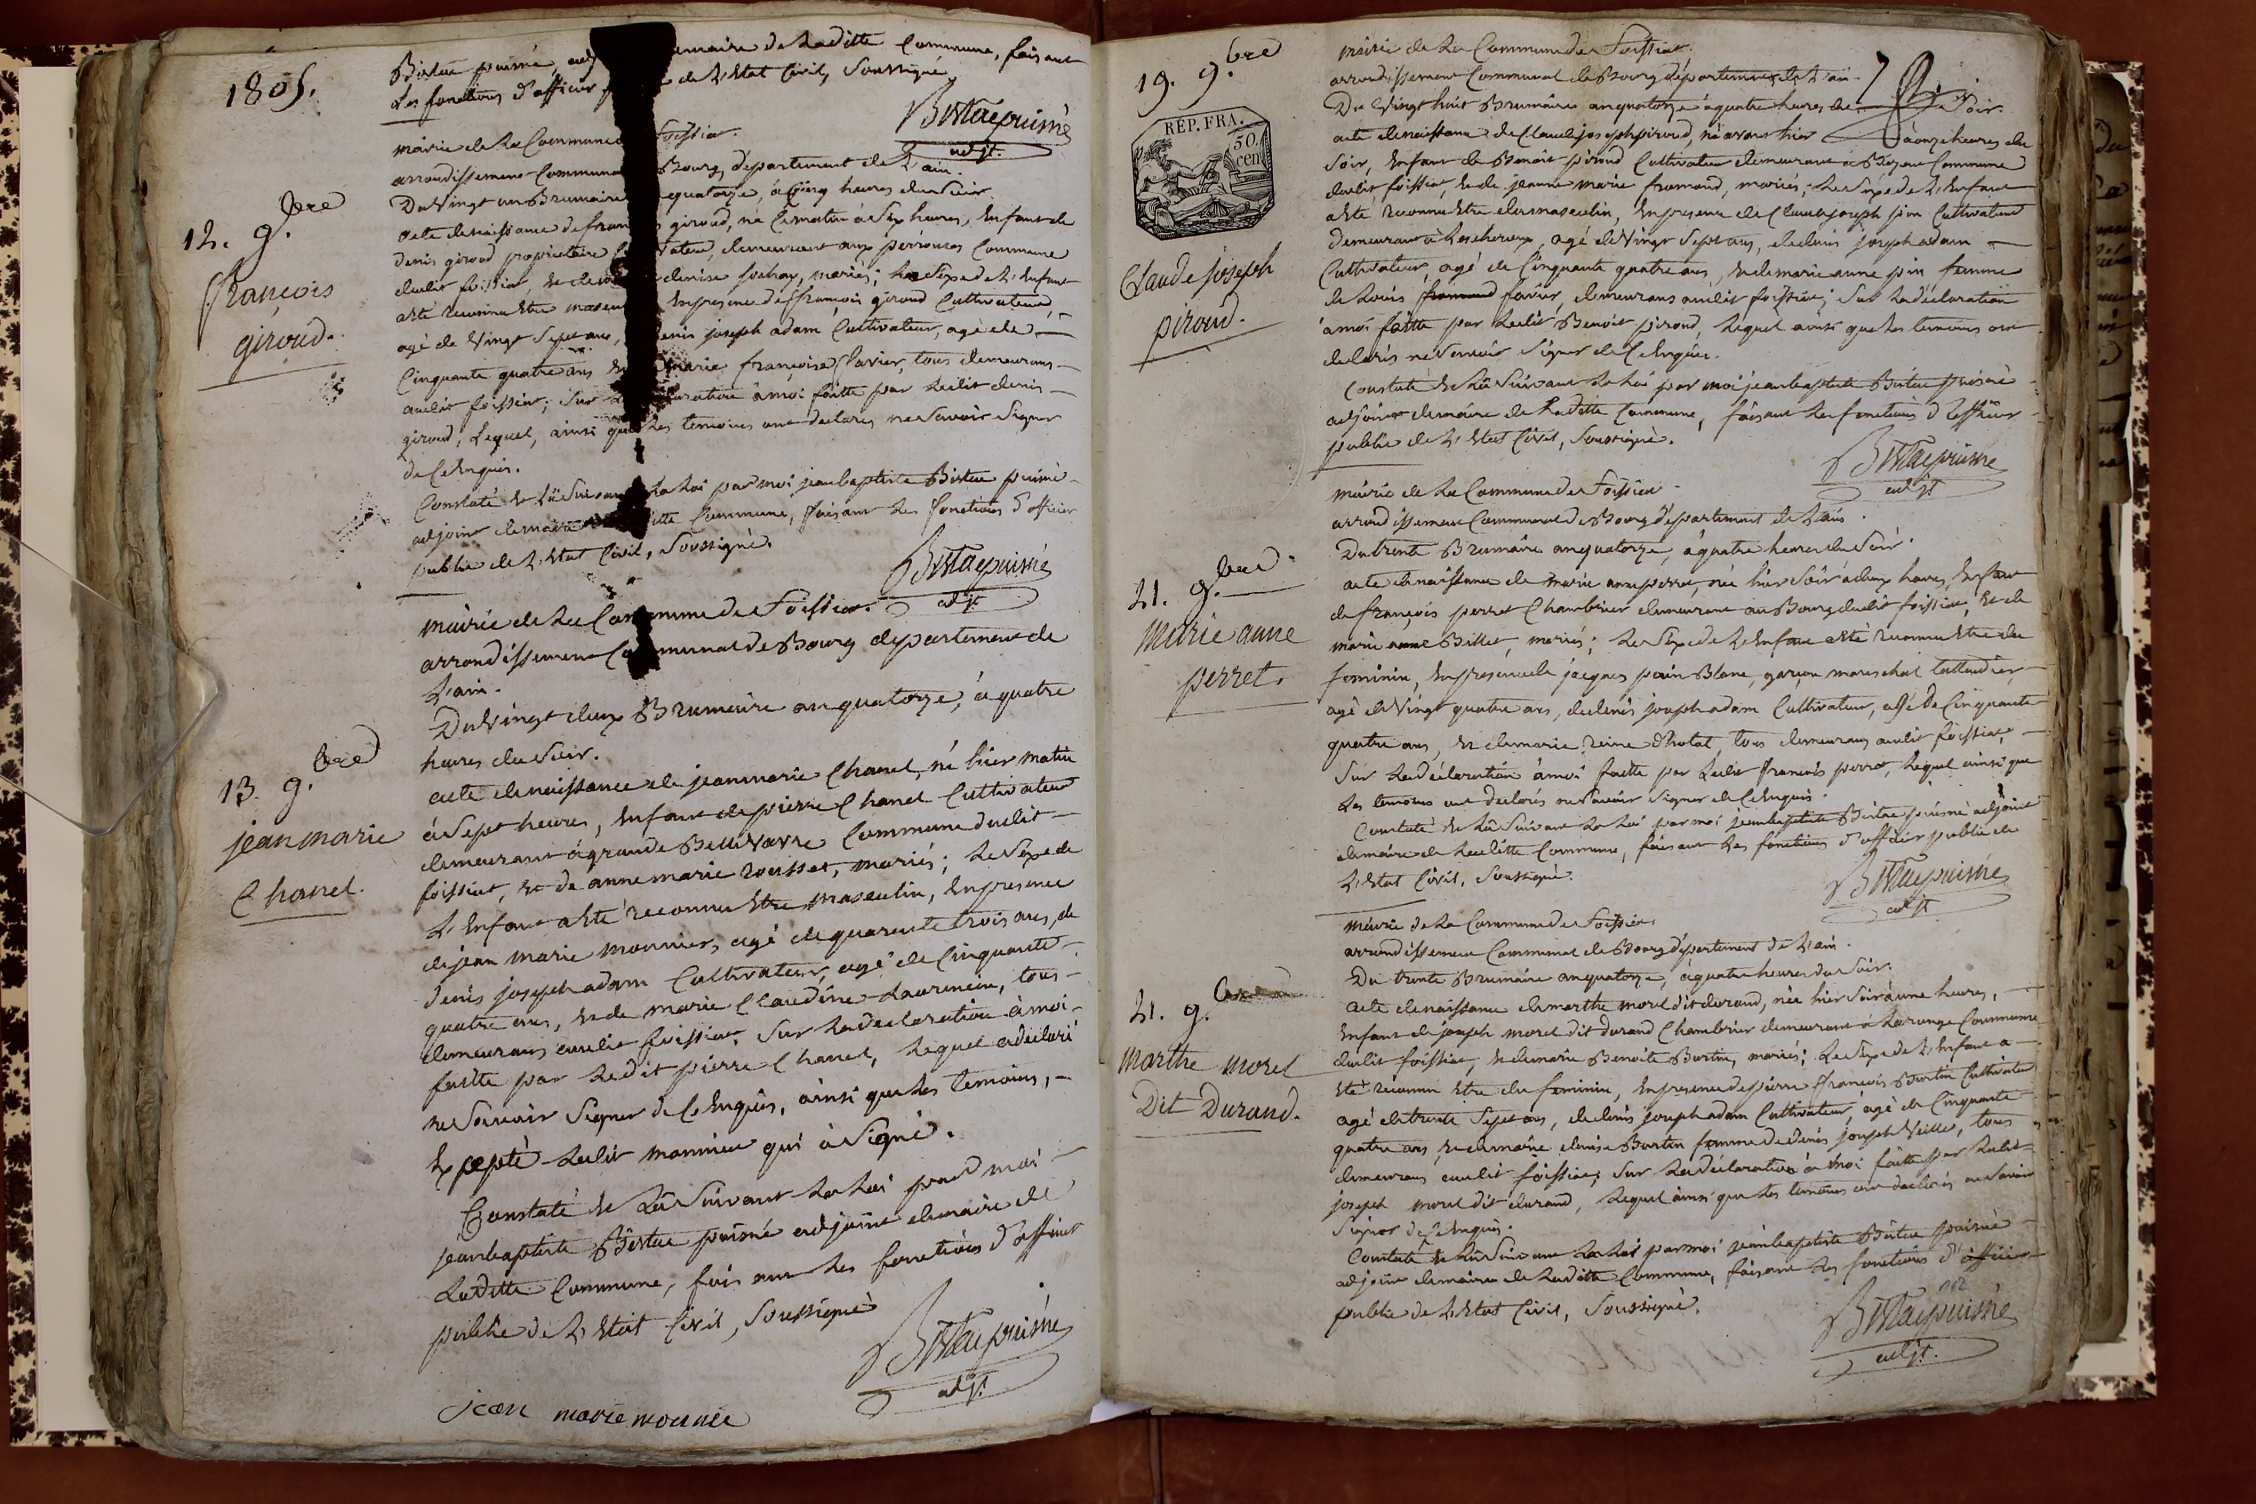 1805.
Bistue puisné adj maire de Laditte Commune, faisant
Les fonctions d'officier de L'Etat Civil, Soussigné
Bistuepuisné
adj.t
mairie de La Commune foissiat.
arrondissement Communal Bourg, département de L'ain.
Du Vingt un Brumaire quatorze, à Cinq heures du Soir
acte de naissance de franç giroud, né Ce matin à Six heures, Enfant de
denis giroud proprietaire vateur, demeurant aux perrouses Commune
dudit foissiat, et de denise fochay, mariés; Le Sexe de L'Enfant
a Eté reconnu Etre mascu En presence de françois giroud Cultivateur,
agé de Vingt Sept ans, denis joseph adam Cultivateur, agé de
Cinquante quatre ans et marie françoise Clavier, tous demeurans
audit foissiat; Sur ration à moi faitte par Ledit denis
giroud, Lequel, ainsi que Les temoins ont declarés ne Savoir Signer
de Ce Enquis.
Constaté et Lû Suivant La Loi par moi jean baptiste Bistue puisné
adjoint de maire itte Commune, faisant Les fonctions d'officier
public de L'Etat Civil, Soussigné.
Bistuepuisné
adj.t
12. 9.bre
françois
giroud.
mairie de La Commune de Foissiat.
arrondissement Communal de Bourg département de
L'ain.
Du Vingt deux Brumaire an quatorze, à quatre
heures du Soir.
acte de naissance de jean marie Chanel, né hier matin
à Sept heures, Enfant de pierre Chanel Cultivateur
demeurant à grande Bellevavre Commune dudit
foissiat, et de anne marie rousset, mariés; Le Sexe de
L'Enfant a Eté reconnu Etre masculin, En presence
de jean marie monnier, agé de quarante trois ans, de
denis joseph adam Cultivateur, agé de Cinquante
quatre ans, et de marie Claudine Laurencin, tous
demeurans audit foissiat, Sur La declaration à moi
faitte par Ledit pierre Chanel, Lequel a declaré
ne Savoir Signer de Ce Enquis, ainsi que Les temoins,
Excepté Ledit monnier qui à Signé.
Constaté et Lû Suivant La Loi par moi
jean baptiste Bistue puisné adjoint de maire de
Laditte Commune, faisant Les fonctions d'officier
public de L'Etat Civil, Soussigné
Bistuepuisné
adj.t
jean marie monnier
13. 9.bre
jean marie
Chanel.
mairie de La Commune de Foissiat.
arrondissement Communal de Bourg département de L'ain
Du Vingt huit Brumaire an quatorze à quatre heures du Soir.
acte de naissance de Claude joseph piroud, né avant hier à onze heures du
Soir, Enfant de Benoit piroud Cultivateur demeurant à Commune
dudit foissiat, et de jeanne marie fromond, mariés; Le Sexe de L'Enfant
a Eté reconnu Etre du masculin, En presence de Claude joseph pin Cultivateur
demeurant à Lescheroux, agé de Vingt Sept ans, de denis joseph adam
Cultivateur, agé de Cinquante quatre ans, et de marie anne pin femme
de Louis favier, demeurans audit foissiat; Sur La déclaration
à moi faitte par Ledit Benoit piroud, Lequel ainsi que Les temoins ont
declarés ne Savoir Signer de Ce Enquis.
Constaté et Lû Suivant La Loi par moi jean baptiste Bistue puisné
adjoint de maire de Laditte Commune, faisant Les fonctions d'officier
public de L'Etat Civil, Soussigné.
Bistuepuisné
adj.t
19. 9.bre
REP. FRA.
50.
cen
Claude joseph
piroud.
mairie de La Commune de Foissiat
arrondissement Communal de Bourg département de L'ain.
Du trente Brumaire an quatorze, à quatre heures du Soir.
acte de naissance de marie anne perret, née hier Soir à deux heures, Enfant
de françois perret Chambrier demeurant au Bourg dudit foissiat, et de
marie anne Billet, mariés; Le Sexe de L'Enfant a Eté reconnu Etre du
feminin, En presence de jacques pain Blanc, garçon mareschal taillandier
agé de Vingt quatre ans, de denis joseph adam Cultivateur, agé de Cinquante
quatre ans, et de marie reine Chatat, tous demeurans audit foissiat,
Sur La déclaration à moi faitte par Ledit françois perret, Lequel ainsi que
Les temoins ont declarés ne Savoir Signer de Ce Enquis.
Constaté et Lû Suivant La Loi par moi jean baptiste Bistue puisné adjoint
de maire de Laditte Commune, faisant Les fonctions d'officier public de
L'Etat Civil, Soussigné.
Bistuepuisné
adj.t
21. 9.bre
Marie anne
perret.
mairie de La Commune de Foissiat
arrondissement Communal de Bourg département de L'ain.
Du trente Brumaire an quatorze, à quatre heures du Soir.
acte de naissance de marthe morel dit durand, née hier Soir à une heures,
Enfant de joseph morel dit durand Chambrier demeurant à Commune
dudit foissiat, et de marie Benoite Burtin, mariés; Le Sexe de L'Enfant a
Eté reconnu Etre du feminin, En presence de pierre françois Burtin Cultivateur
agé de trente Sept ans, de denis joseph adam Cultivateur, agé de Cinquante
quatre ans, et de marie denise Burtin femme de denis joseph Veillet, tous
demeurans audit foissiat; Sur La déclaration à moi faitte par Ledit
joseph morel dit durand, Lequel ainsi que Les temoins ont declarés ne Savoir
Signer de Ce Enquis.
Constaté et Lû Suivant La Loi par moi jean baptiste Bistue puisné
adjoint de maire de Laditte Commune, faisant Les fonctions d'officier
public de L'Etat Civil, Soussigné.
Bistuepuisné
adj.t
21. 9.bre
Marthe morel
Dit Durand.